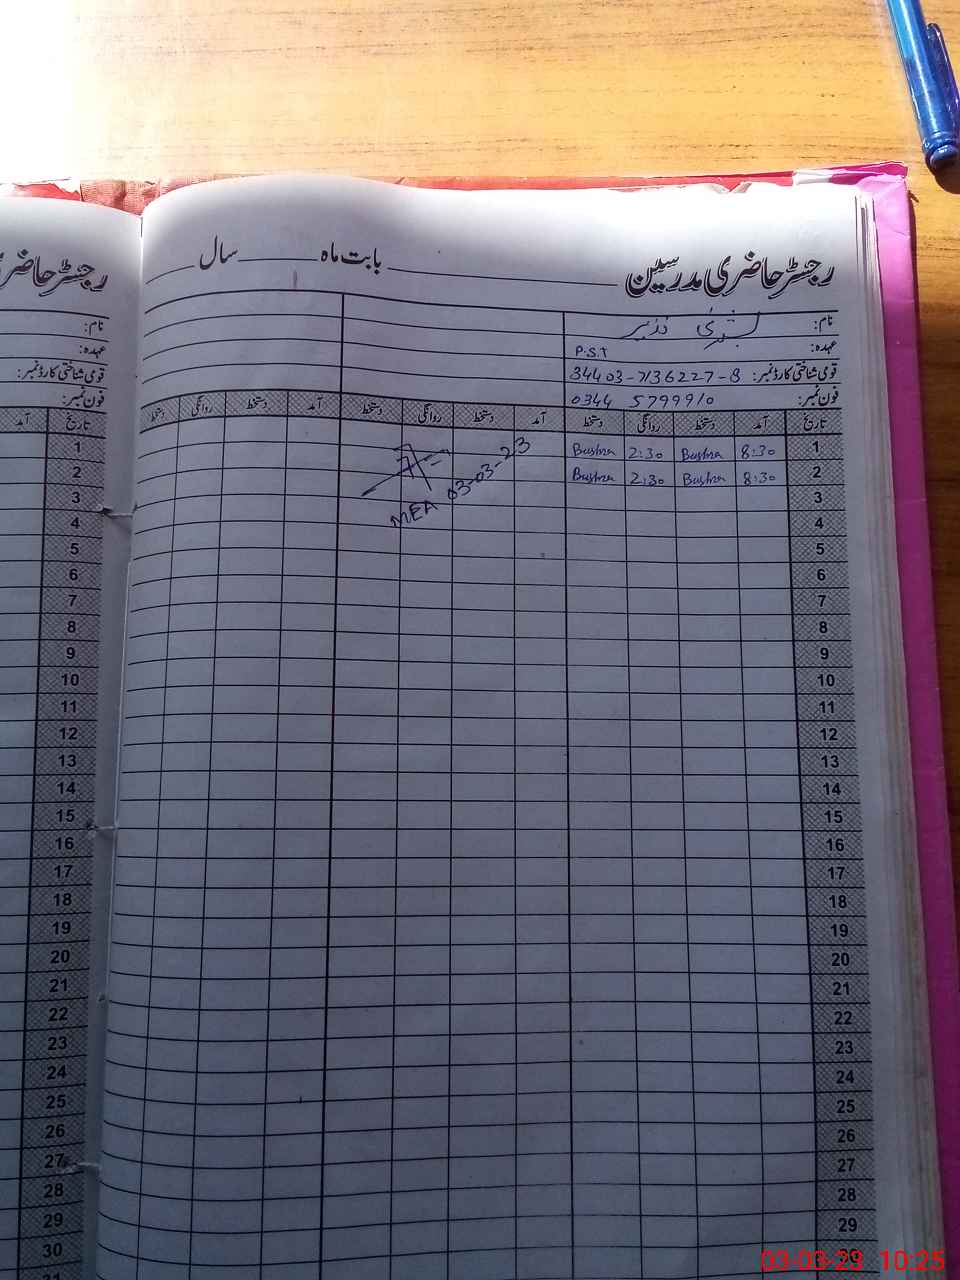 رجسٹر حاضری مدرسین ______ بابت ماہ ______ سال ______
نام: بشریٰ نذیر
عہدہ: P.S.T
قومی شناختی کارڈ نمبر: 34403-7136227-8
فون نمبر: 0344 5799910
تاریخ آمد دستخط روانگی دستخط آمد دستخط روانگی دستخط آمد دستخط روانگی دستخط
1 8:30 Bushra 2:30 Bushra
2 8:30 Bushra 2:30 Bushra
MEA 03-03-23
3
4
5
6
7
8
9
10
11
12
13
14
15
16
17
18
19
20
21
22
23
24
25
26
27
28
29
رجسٹر حاضری
نام:
عہدہ:
قومی شناختی کارڈ نمبر:
فون نمبر:
تاریخ آمد
1
2
3
4
5
6
7
8
9
10
11
12
13
14
15
16
17
18
19
20
21
22
23
24
25
26
27
28
29
30
03-03-23 10:25